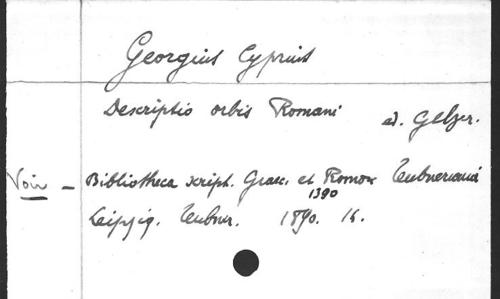 Georgius Cyprius
Descriptio orbis Romani ed. Gelzer.
Voir - Bibliotheca script. Graec. et Roman Teubneriana
1390
Leipzig. Teubner. 1890. 16.